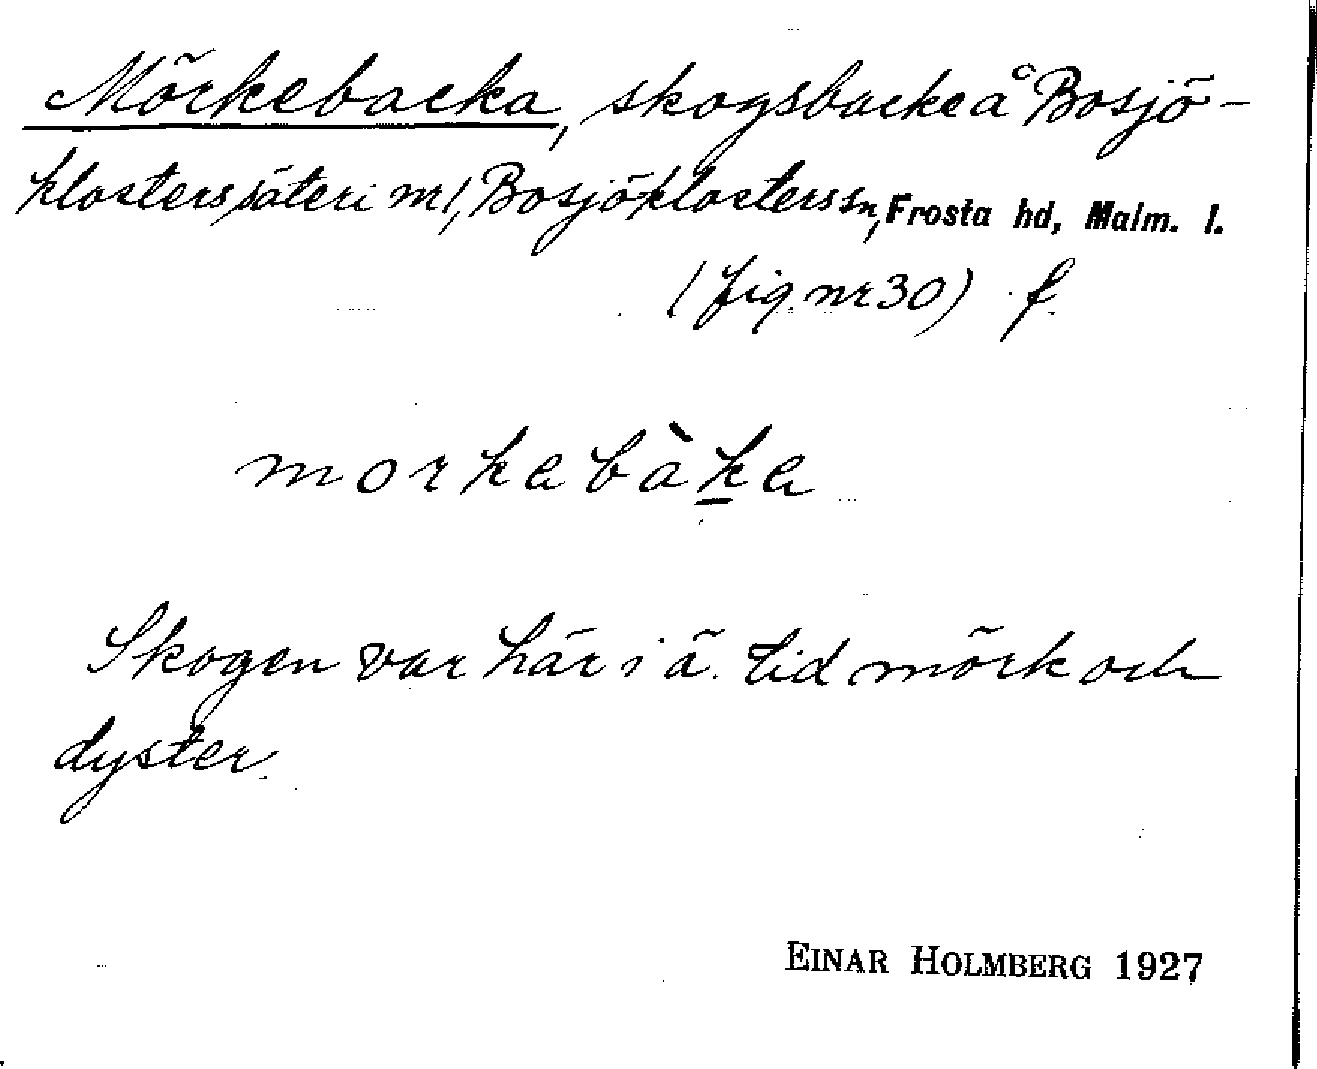 Mörkebacka, skogsbacke å Bosjö-
klosters säteri nr 1, Bosjöklosters sn, Frosta hd, Malm. l.
(fig. nr 30) f.
morkabàka
Skogen var här i ä. tid mörk och
dyster.
EINAR HOLMBERG 1927